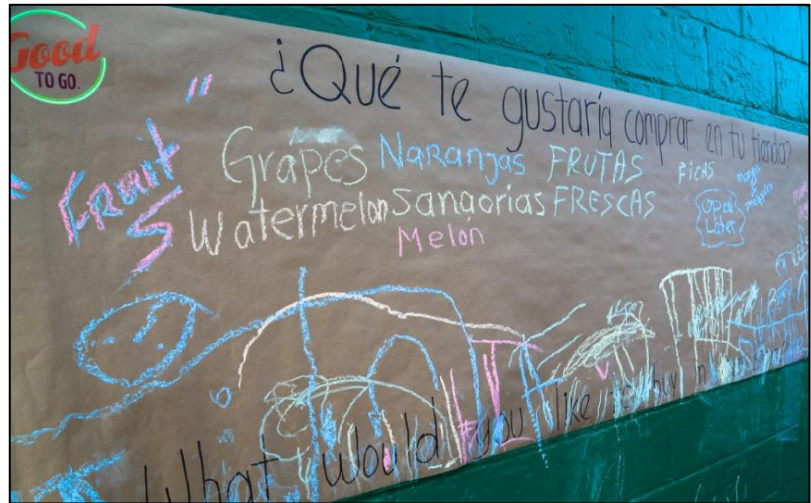 Good
TO GO.
¿Qué te gustaría comprar en tu tienda?
FRUIT
S
Grapes NARANJAS FRUTAS
Watermelon Sanaorias FRESCAS
Melón
OPEN
Later
What would you like to buy in